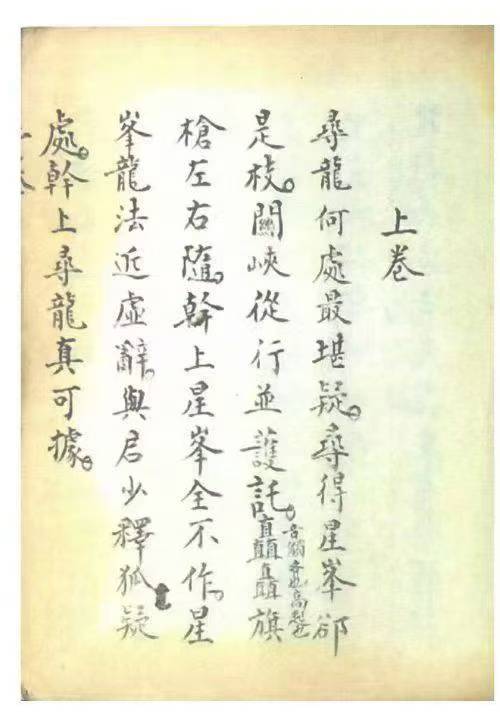 上卷
尋龍何處最堪疑。尋得星峯郤
是枝。關峽從行並護託。矗矗旗
音觸齊也高起也
槍左右隨。幹上星峯全不作。星
峯龍法近虛辭。與君少釋狐疑
處。幹上尋龍真可據。